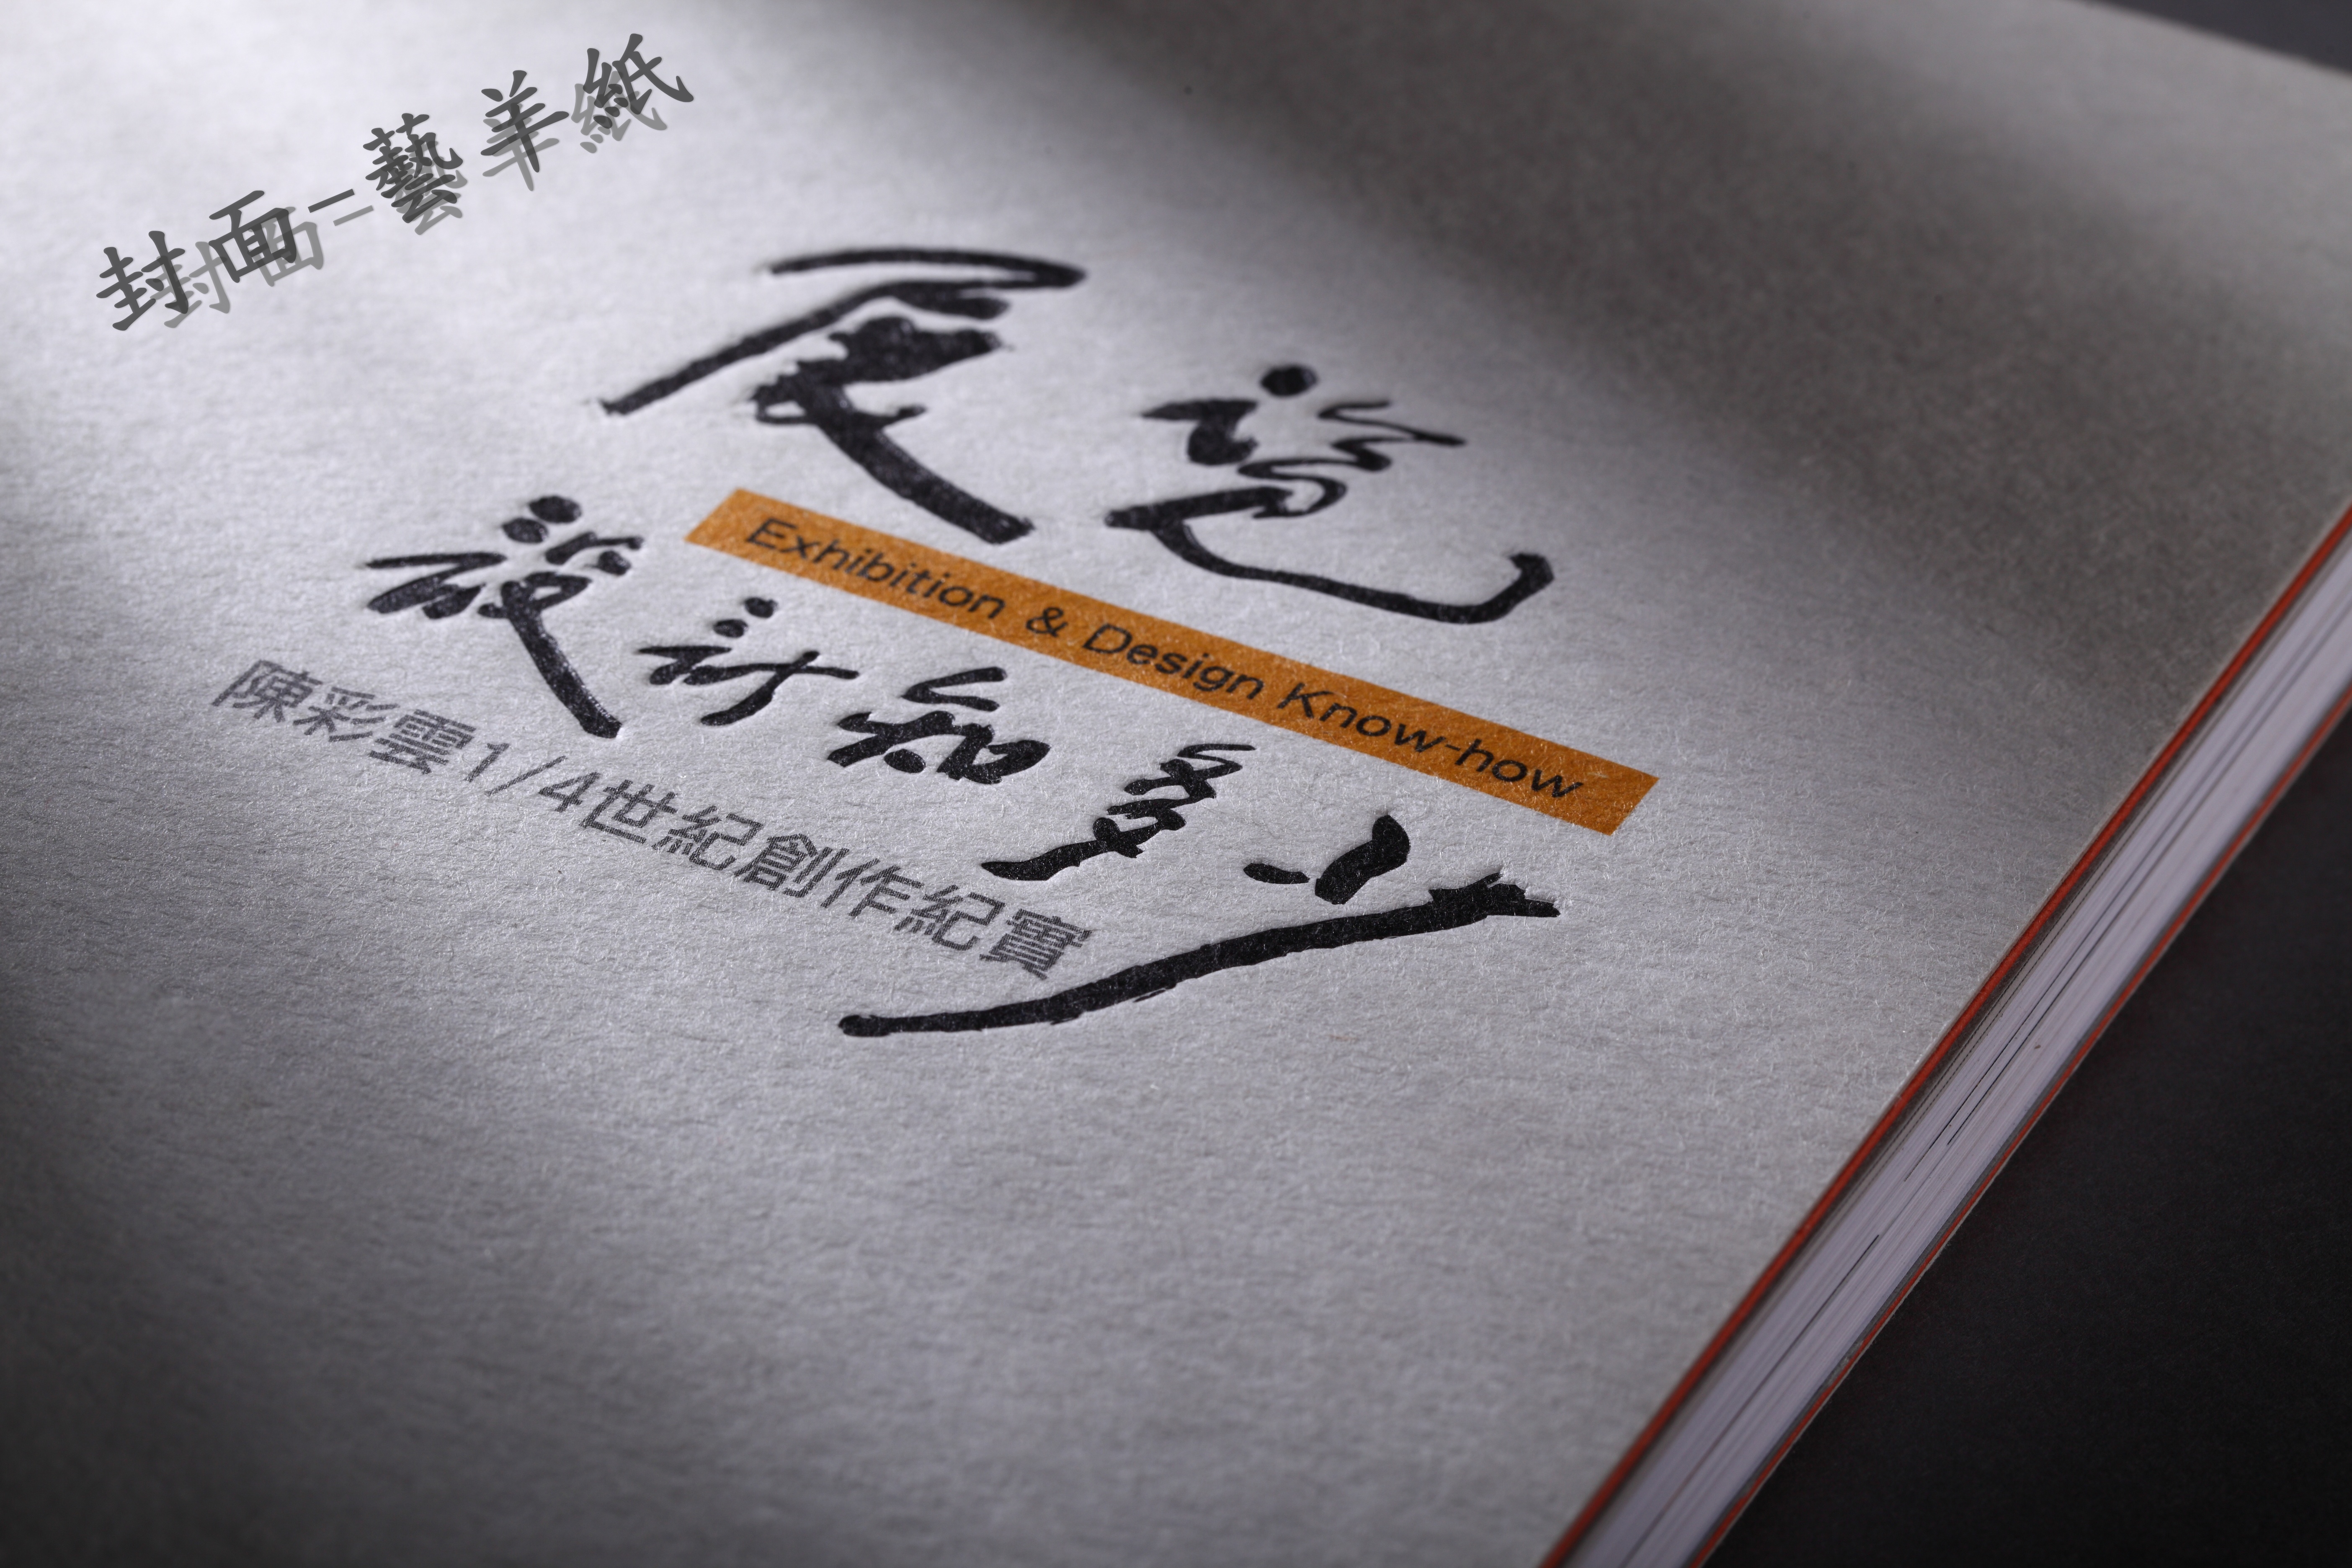 封面-藝羊紙
展覽
Exhibition & Design Know-how
設計知多少
陳彩雲1/4世紀創作紀實